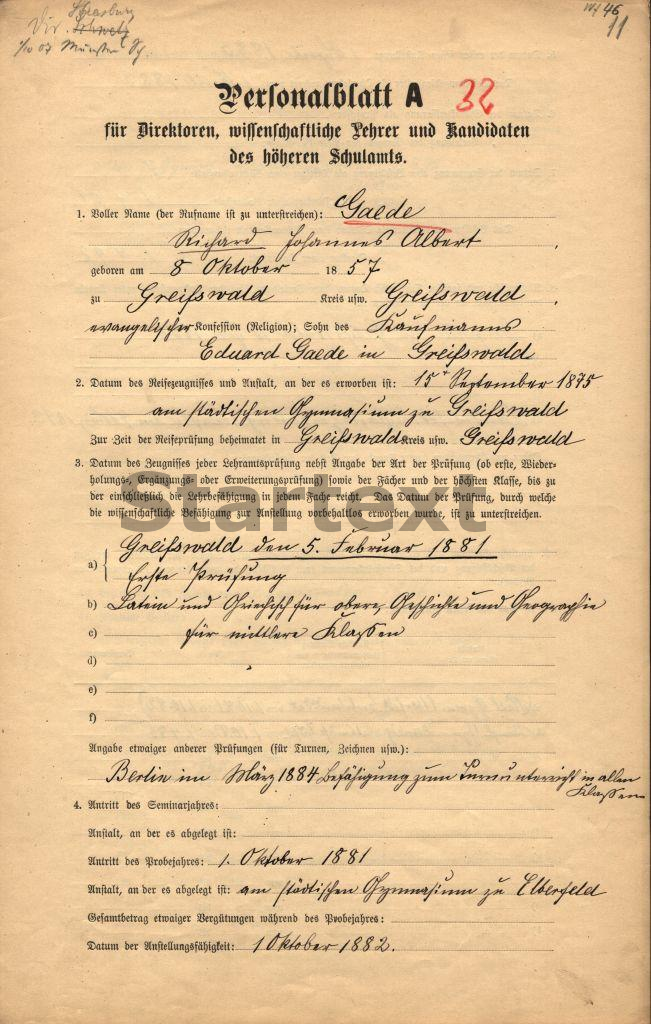 Strasburg
Dir. Schwetz
1/10 07 Münster Sch.
46
11
Personalblatt A 32
für Direktoren, wissenschaftliche Lehrer und Kandidaten
des höheren Schulamts.
1. Voller Name (der Rufname ist zu unterstreichen): Gaede
Richard Johannes Albert,
geboren am 8 Oktober 1857
zu Greifswald Kreis usw. Greifswald,
evangelischer Konfession (Religion); Sohn des Kaufmanns
Eduard Gaede in Greifswald
2. Datum des Reifezeugnisses und Anstalt, an der es erworben ist: 15t September 1875
am städtischen Gymnasium zu Greifswald
Zur Zeit der Reifeprüfung beheimatet in Greifswald Kreis usw. Greifswald
3. Datum des Zeugnisses jeder Lehramtsprüfung nebst Angabe der Art der Prüfung (ob erste, Wieder-
holungs-, Ergänzungs- oder Erweiterungsprüfung) sowie der Fächer und der höchsten Klasse, bis zu
der einschließlich die Lehrbefähigung in jedem Fache reicht. Das Datum der Prüfung, durch welche
die wissenschaftliche Befähigung zur Anstellung vorbehaltlos erworben wurde, ist zu unterstreichen.
Startext
Greifswald den 5. Februar 1881
a) Erste Prüfung
b) Latein und Griechisch für obere, Geschichte und Geographie
c) für mittlere Klassen
d)
e)
f)
Angabe etwaiger anderer Prüfungen (für Turnen, Zeichnen usw.):
Berlin im März 1884 Befähigung zum Turnunterricht in allen
Klassen
4. Antritt des Seminarjahres:
Anstalt, an der es abgelegt ist:
Antritt des Probejahres: 1. Oktober 1881
Anstalt, an der es abgelegt ist: am städtischen Gymnasium zu Elberfeld
Gesamtbetrag etwaiger Vergütungen während des Probejahres:
Datum der Anstellungsfähigkeit: 1 Oktober 1882.